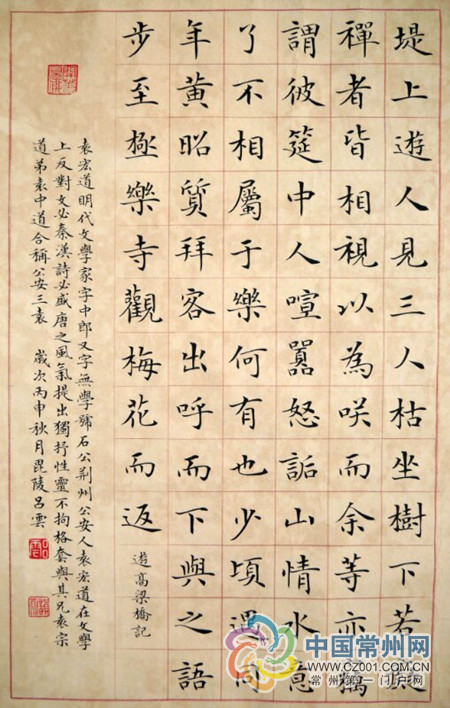 堤上遊人見三人枯坐樹下若癡
禪者皆相視以為咲而余等亦竊
謂彼筵中人喧囂怒詬山情水意
了不相屬于樂何有也少頃遇同
年黃昭質拜客出呼而下與之語
步至極樂寺觀梅花而返
遊高梁橋記
袁宏道明代文學家字中郎又字無學號石公荊州公安人袁宏道在文學
上反對文必秦漢詩必盛唐之風氣提出獨抒性靈不拘格套與其兄袁宗
道弟袁中道合稱公安三袁 歲次丙申秋月毘陵呂雲
中国常州网
WWW.CZ001.COM.CN
常州第一门户网